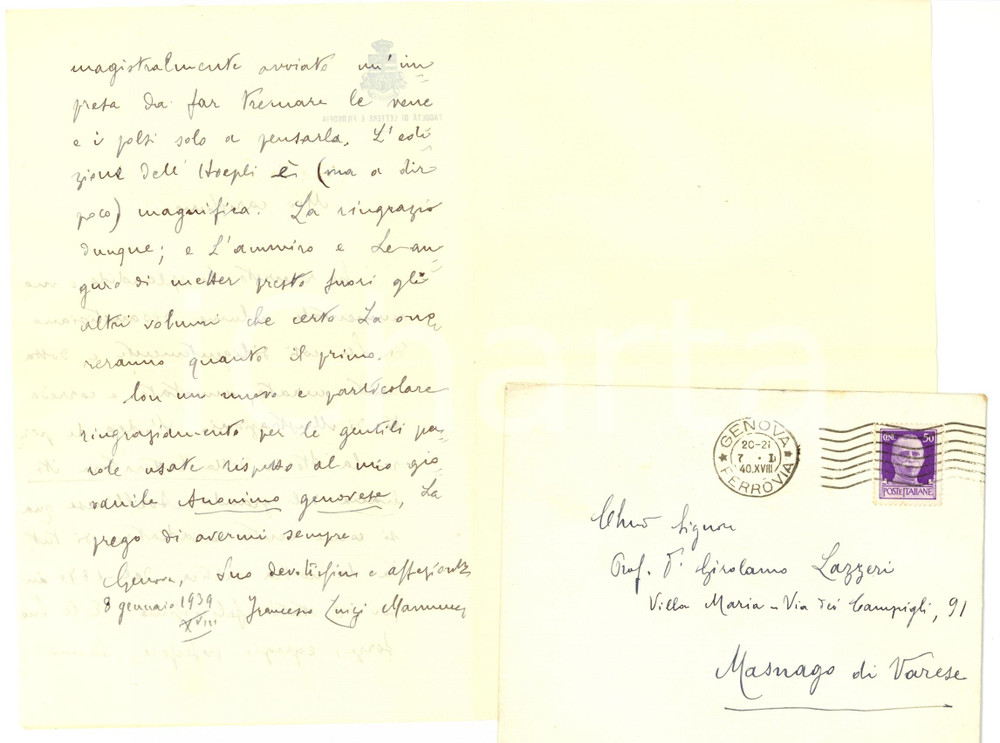 magistralmente avviato un'im=
presa da far tremare le vene
e i polsi solo a pensarla. L'edi=
zione dell'Hoepli è (ma a dir
poco) magnifica. La ringrazio
dunque; e L'ammiro e Le au=
guro di metter presto fuori gli
altri volumi che certo La ono=
reranno quanto il primo.
Con un nuovo e particolare
ringraziamento per le gentili pa=
role usate rispetto al mio gio=
vanile Anonimo genovese, La
prego di avermi sempre
Genova, Suo devotissimo e affezionato
8 gennaio 1939 Francesco Luigi Mannucci
XVIII
FACOLTÀ DI LETTERE E FILOSOFIA
GENOVA
20-21
7 · I
40.XVIII
FERROVIA
CENT. 50
POSTE ITALIANE
Chmo Signor
Prof. Dr. Girolamo Lazzeri
Villa Maria - Via dei Campigli, 91
Masnago di Varese